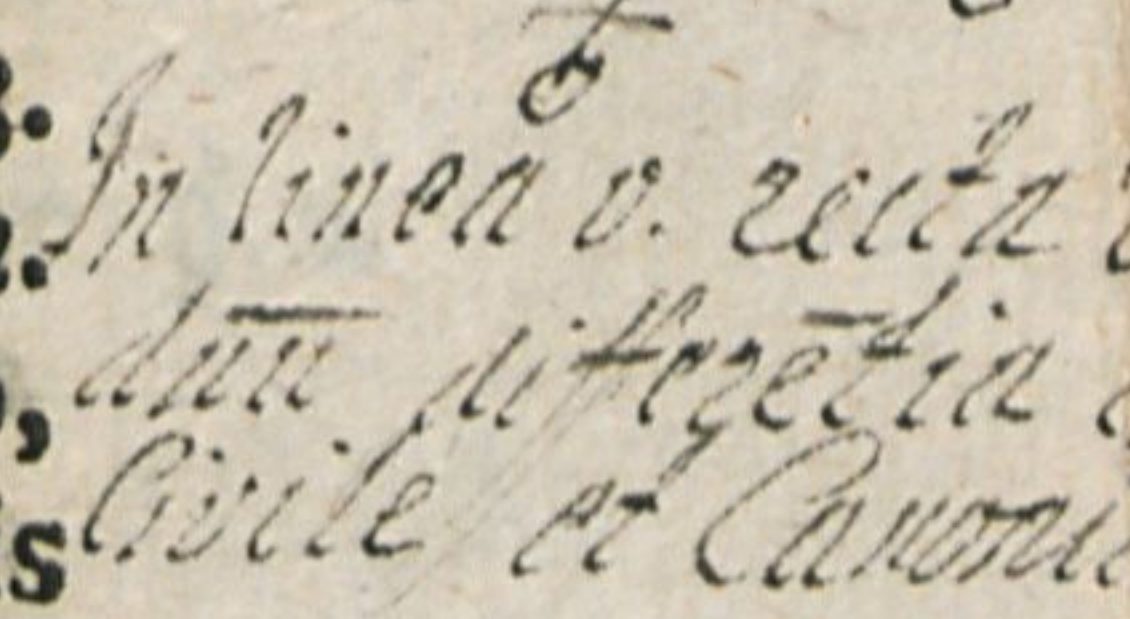 In linea v. recta
differētia
Civile et Canoni